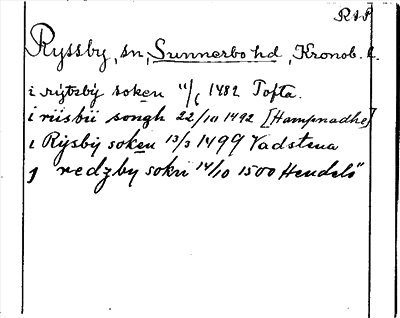 RAP
Ryssby, sn, Sunnerbo hd, Kronob. l.
i rytzby soken 11/6 1482 Tofta.
i riisbii songh 22/10 1492 [Hampnadhe]
i Rysby soken 13/3 1499 Vadstena
j redzby sokn 14/10 1500 Hendelö